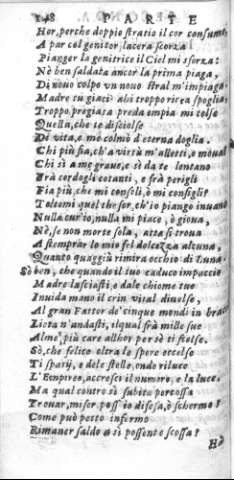 148 PARTE
Hor, perche doppio stratio il cor consumi
A par col genitor, lacera scorza?
Pianger la genitrice il Ciel mi sforza:
Nè ben saldata ancor la prima piaga,
Di nouo colpo vn nouo stral m'impiaga
Madre tu giaci ahi troppo ricca spoglia;
Troppo pregiata preda empia mi tolse
Quella, che te disciolse
Di vita, e me colmò d'eterna doglia.
Chi più fia, ch'a virtù m'alletti, e moua?
Chi sì a me graue, e sè da te lontano
Frà cordogli cotanti, e frà perigli
Fia più, che mi consoli, ò mi consigli?
Tolsomi quel thesor, ch'io piango inuano
Nulla cur'io, nulla mi piace, ò gioua,
Nè, se non morte sola, atta si troua
A stemprar lo mio fel dolcezza alcuna,
Quanto quaggiù rimira occhio di Luna.
Sò ben, che quando il tuo caduco impaccio
Madre lasciasti, e dale chiome tue
Inuida mano il crin vital diuelse,
Al gran Fattor de' cinque mondi in braccio
Lieta n'andasti, ilqual frà mille sue
Alme più care allhor per sè ti scelse.
Sò, che felice oltra le spere eccelse
Ti spatij, e dele stelle, onde riluce
L'Empireo, accresci il numero, e la luce.
Ma qual contro sì subita percossa
Trouar, miser poss'io difesa, ò schermo?
Come può petto infermo
Rimaner saldo a sì possente scossa?